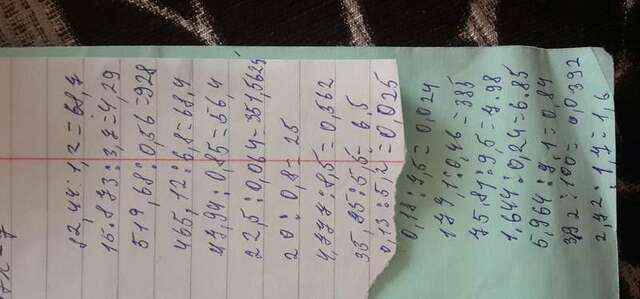 82,44:1,2=68,7
15.873:3,7=4,29
519,68:0,56=928
465,12:6,8=68,4
47,94:0,85=56,4
22,5:0,064=351,5625
20:0,8=25
4,777:8,5=0,562
35,75:5,5=6,5
0,13:5,2=0,025
0,18:7,5=0,024
177,1:0,46=385
75.81:9,5=7.98
1,644:0,24=6.85
5,964:7,1=0,84
3,92:100=0,0392
2,72:1,7=1,6